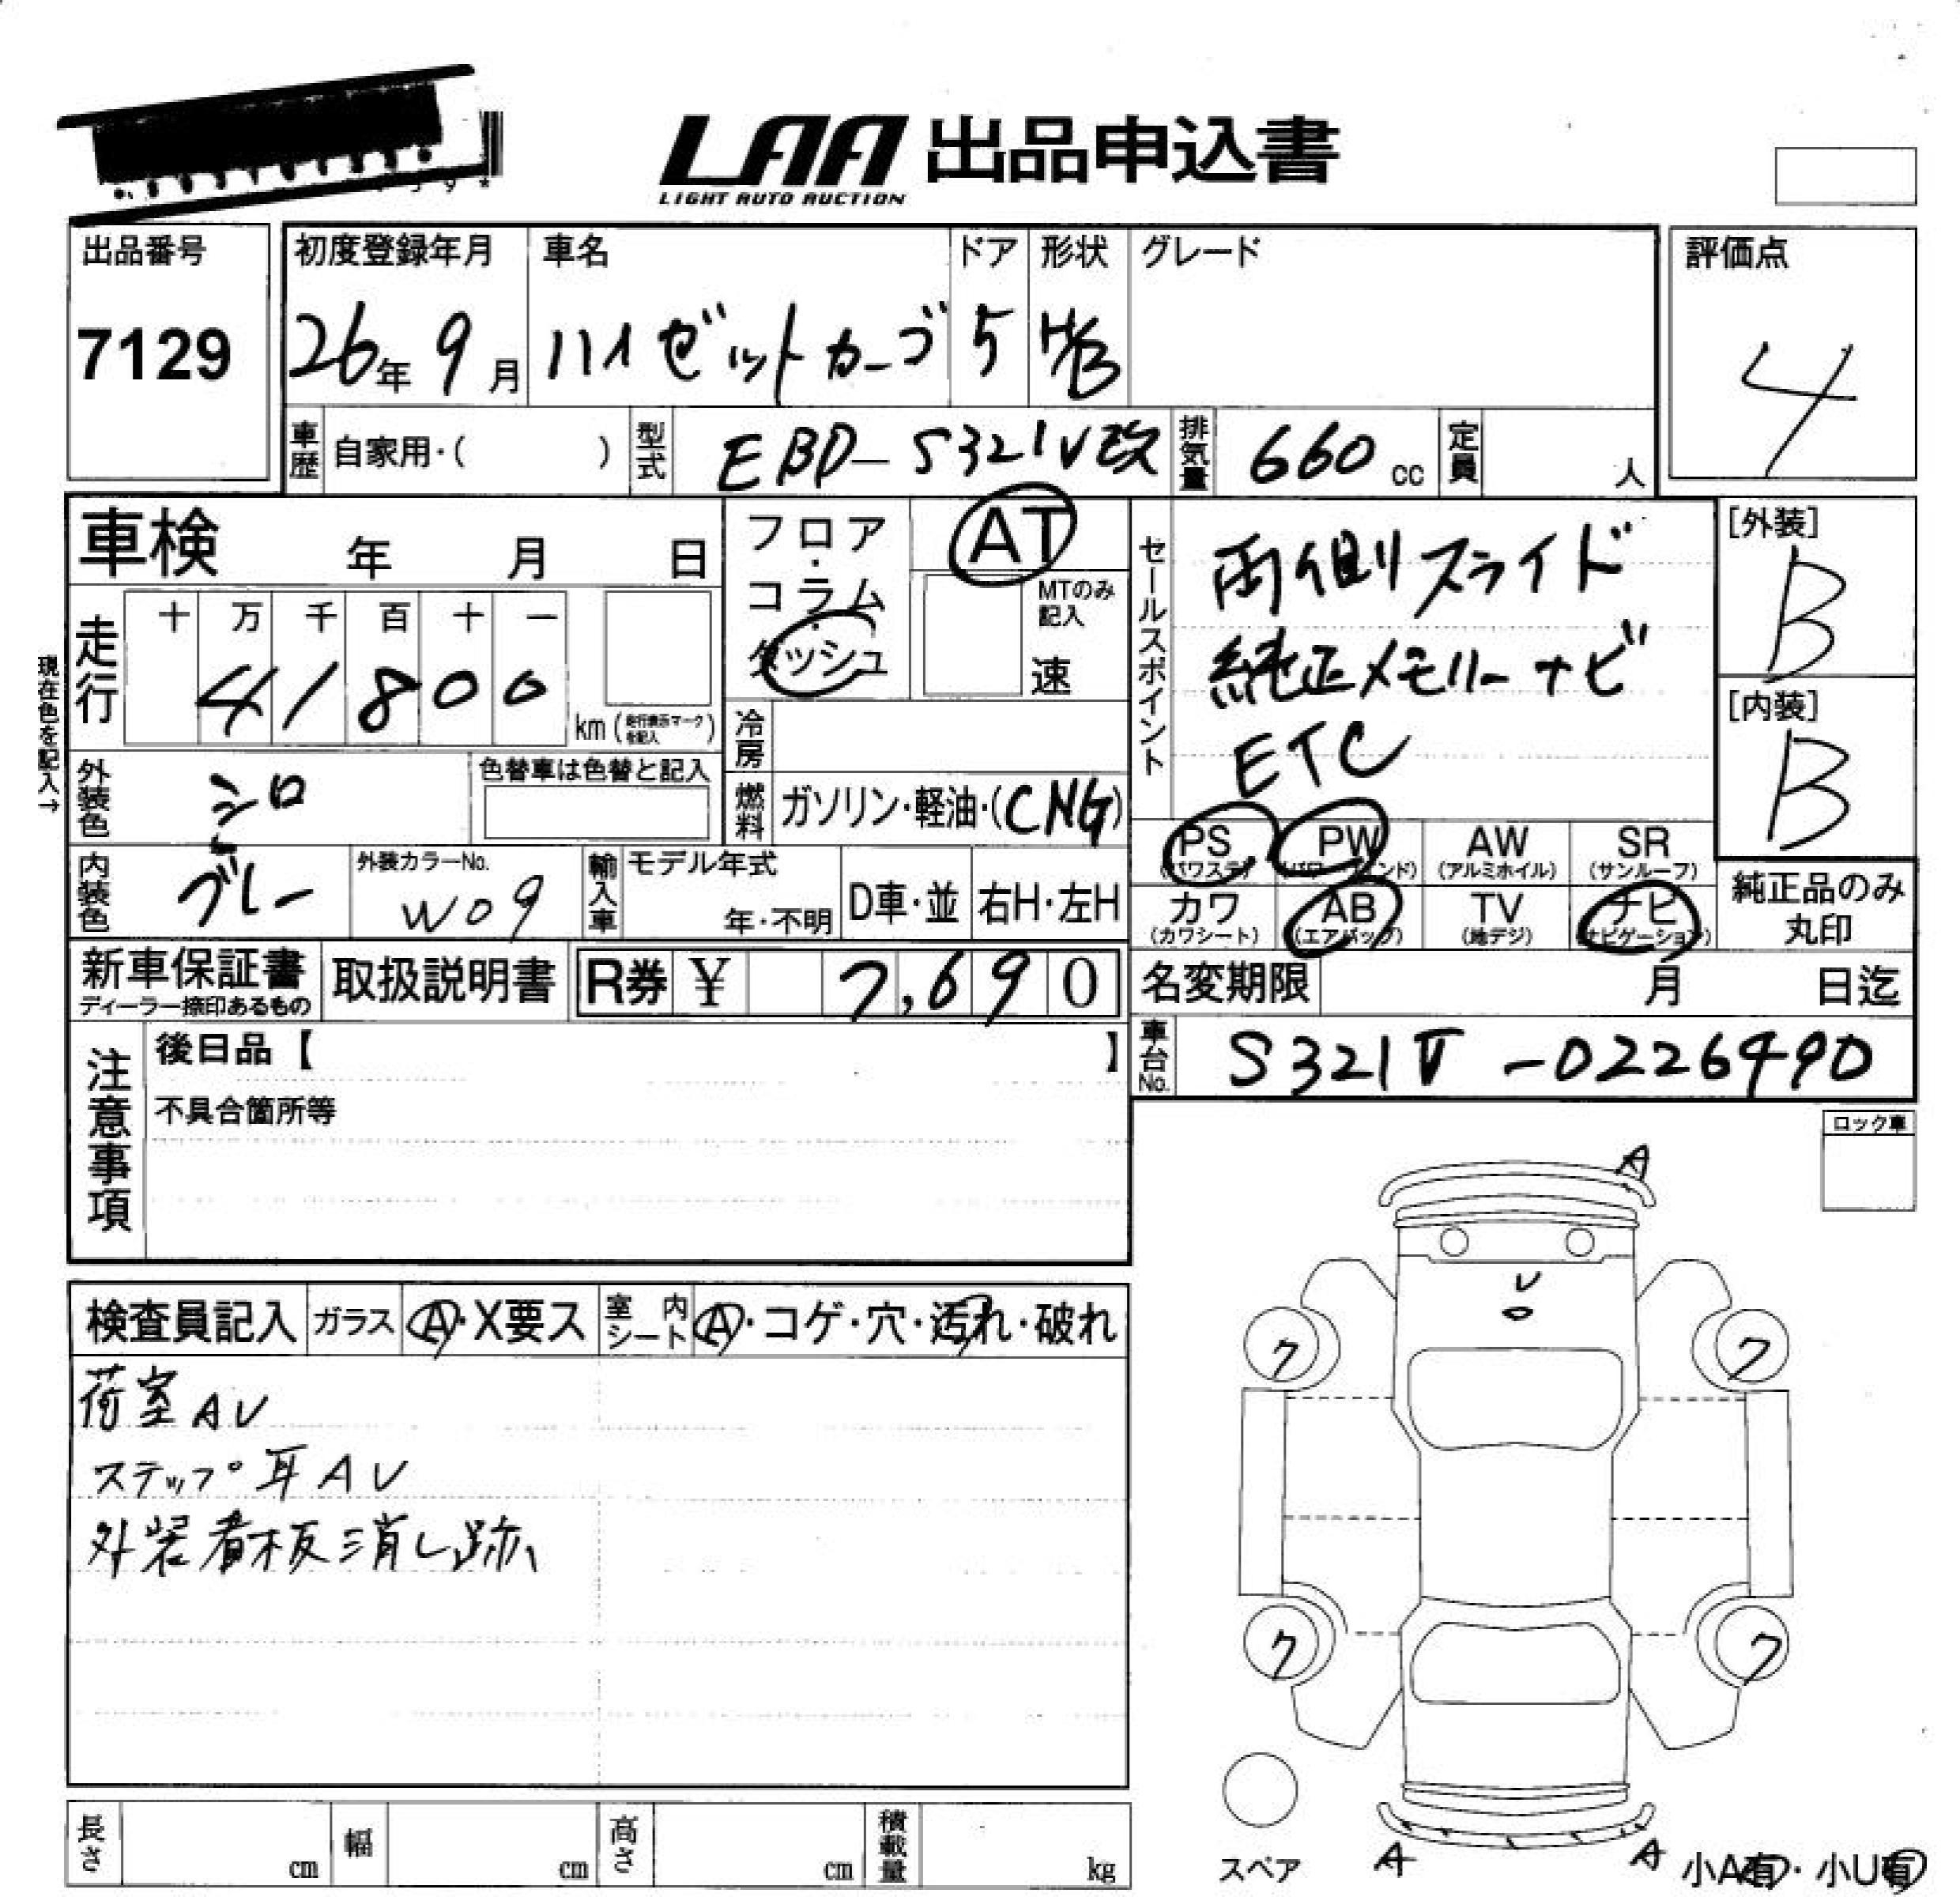 LAA 出品申込書
LIGHT AUTO AUCTION
出品番号
7129
初度登録年月
26年 9月
車名
ハイゼットカーゴ
ドア
5
形状
H/B
グレード
評価点
4
車歴 自家用・( )
型式 EBD-S321V改
排気量 660 cc
定員 人
車検 年 月 日
フロア・コラム・ダッシュ
AT
MTのみ記入
速
セールスポイント
両側スライド
純正メモリーナビ
ETC
[外装]
B
[内装]
B
現在色を記入→
走行
十 万 千 百 十 一
4 1 8 0 0
km (走行表示マークを記入)
冷房
外装色 シロ
色替車は色替と記入
燃料 ガソリン・軽油・(CNG)
PS (パワステ)
PW (パワーウインド)
AW (アルミホイル)
SR (サンルーフ)
カワ (カワシート)
AB (エアバッグ)
TV (地デジ)
ナビ (ナビゲーション)
純正品のみ丸印
内装色 グレー
外装カラーNo.
W09
輸入車
モデル年式
年・不明
D車・並
右H・左H
新車保証書
ディーラー捺印あるもの
取扱説明書
R券 ¥ 7,690
名変期限 月 日迄
車台No. S321V-0226490
注意事項
後日品【 】
不具合箇所等
ロック車
A
U
検査員記入 ガラス A・X要ス 室内シート A・コゲ・穴・汚れ・破れ
荷室AU
ステップ耳AU
外装看板消し跡
ク ク
ク ク
長さ cm
幅 cm
高さ cm
積載量 kg
スペア
A A
小A有・小U有